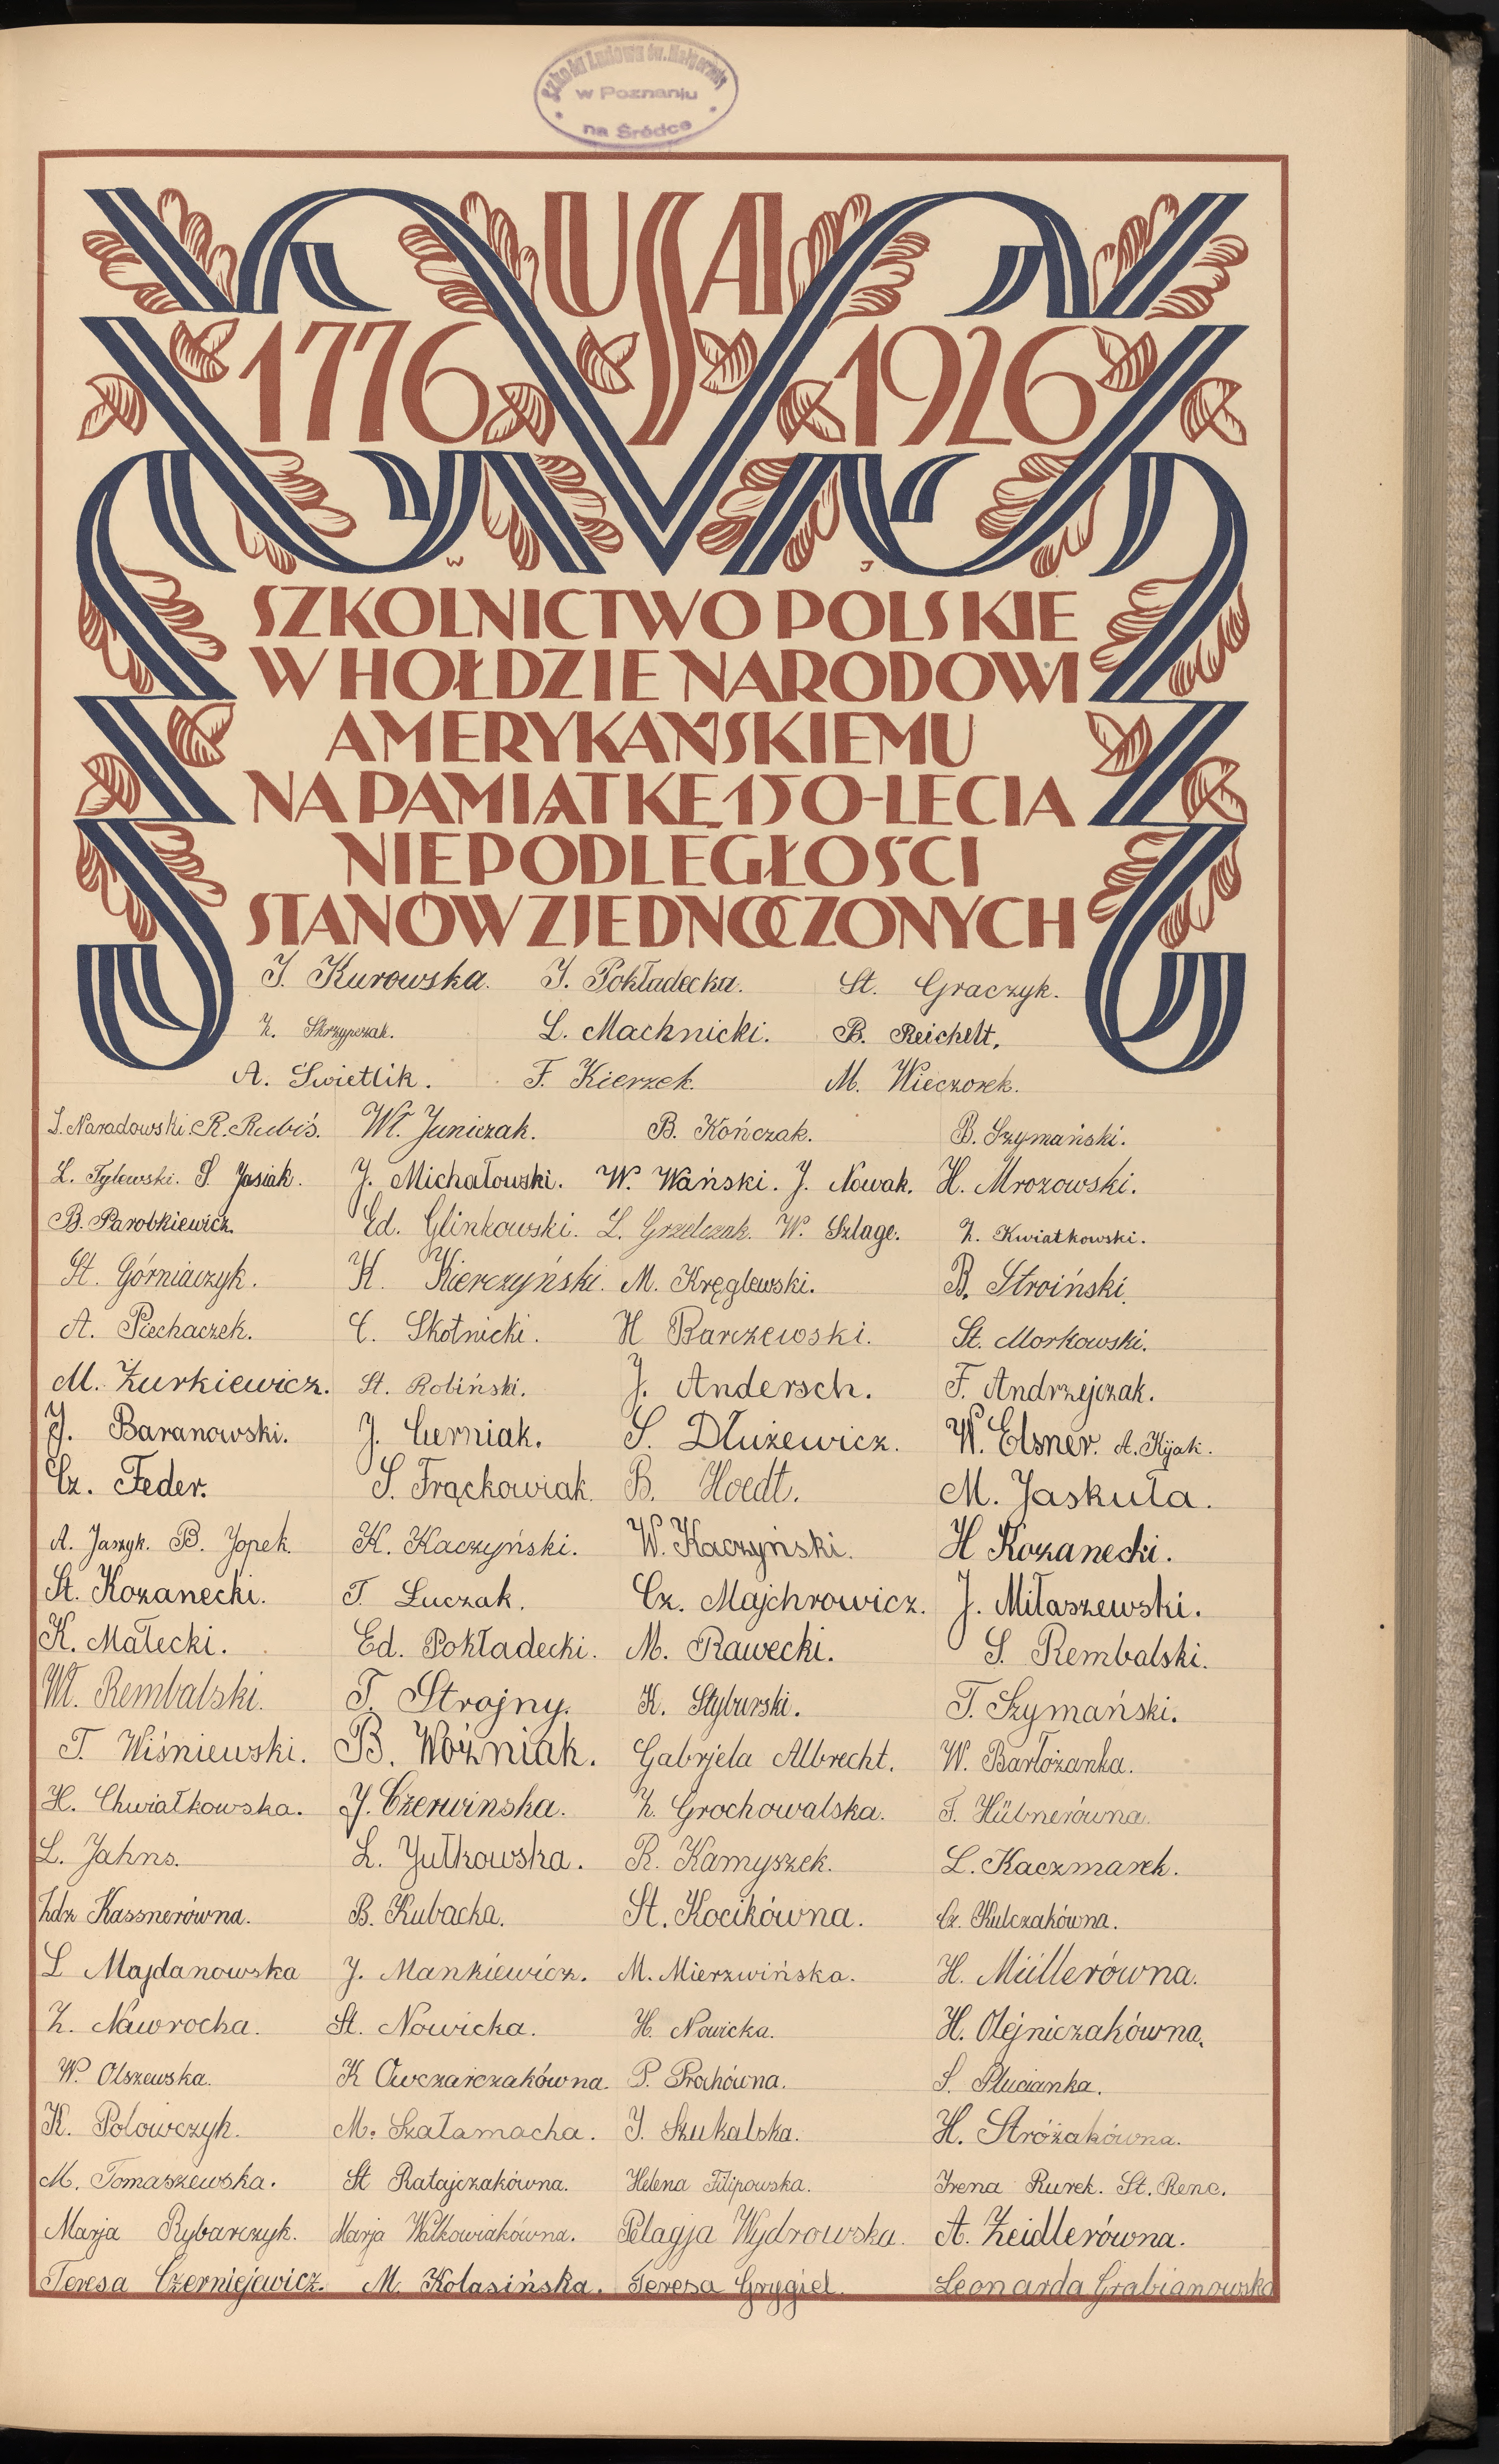 Szkoła Ludowa św. Małgorzaty
w Poznaniu
na Śródce
USA
1776 1926
W J
SZKOLNICTWO POLSKIE
W HOŁDZIE NARODOWI
AMERYKAŃSKIEMU
NA PAMIĄTKĘ 150-LECIA
NIEPODLEGŁOŚCI
STANÓW ZJEDNOCZONYCH
J. Kurowska. J. Pokładecka. St. Graczyk.
Z. Skrzypczak. L. Machnicki. B. Reichelt.
A. Swietlik. F. Kierzek. M. Wieczorek.
S. Naradowski. R. Rubiś. Wł. Juniczak. B. Kończak. B. Szymański.
L. Tylewski. S. Jasiak. J. Michałowski. W. Wański. J. Nowak. H. Mrozowski.
B. Parobkiewicz. Ed. Glinkowski. L. Grzelczak. W. Szlage. Z. Kwiatkowski.
St. Górniaczyk. K. Kierczyński. M. Kręglewski. B. Stroiński.
A. Piechaczek. C. Skotnicki. H Barczewski. St. Morkowski.
M. Żurkiewicz. St. Robiński. J. Andersch. F. Andrzejczak.
J. Baranowski. J. Cierniak. S. Dłużewicz. W. Elsner. A. Kijak.
Cz. Feder. S. Frąckowiak. B. Hoedt. M. Jaskuła.
A. Jaszyk. B. Jopek. K. Kaczyński. W. Kaczyński. H Kozanecki.
St. Kozanecki. T. Luczak. Cz. Majchrowicz. J. Miłaszewski.
K. Małecki. Ed. Pokładecki. M. Rawecki. S. Rembalski.
Wł. Rembalski. T. Strojny. K. Styburski. T. Szymański.
T. Wiśniewski. B. Woźniak. Gabrjela Albrecht. W. Bartożanka.
H. Chwiałkowska. J. Czerwinska. Z. Grochowalska. T. Hübnerówna.
L. Jahns. L. Jutkowska. R. Kamyszek. L. Kaczmarek.
Zdz Kassnerówna. B. Kubacka. St. Kocikówna. Cz. Kulczakówna.
L Majdanowska J. Mankiewicz. M. Mierzwińska. H. Müllerówna.
Z. Nawrocka. St. Nowicka. H. Nowicka. H. Olejniczakówna.
W. Olszewska. K Owczarczakówna. P. Prochówna. S. Plucianka.
K. Polowczyk. M. Szałamacha. J. Szukalska. H. Stróżakówna.
M. Tomaszewska. St Ratajczakówna. Helena Filipowska. Irena Rurek. St. Renc.
Marja Rybarczyk. Marja Watkowiakówna. Pelagja Wydrowska. A. Zeidlerówna.
Teresa Czerniejewicz. M. Kolasińska. Teresa Grygiel. Leonarda Grabianowska